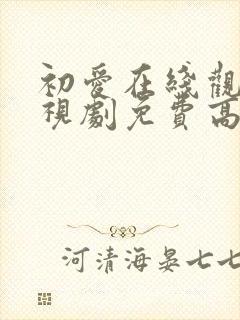 初爱在綫觀
視劇免費高
河清海晏七七